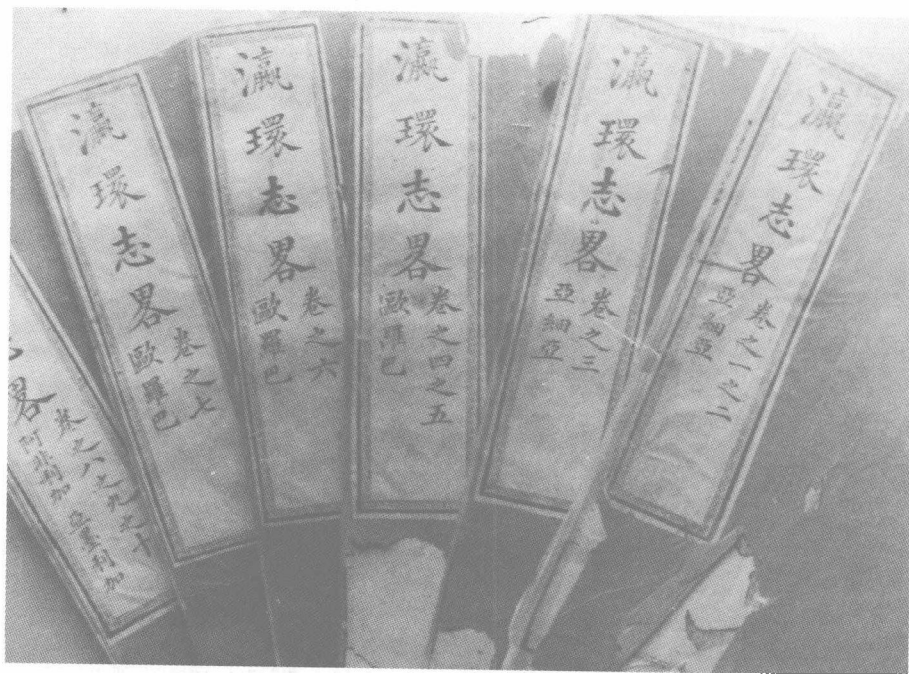 瀛環志畧
卷之一之二
亞細亞
瀛環志畧
卷之三
亞細亞
瀛環志畧
卷之四之五
歐羅巴
瀛環志畧
卷之六
歐羅巴
瀛環志畧
卷之七
歐羅巴
畧
卷之八之九之十
阿非利加 亞墨利加